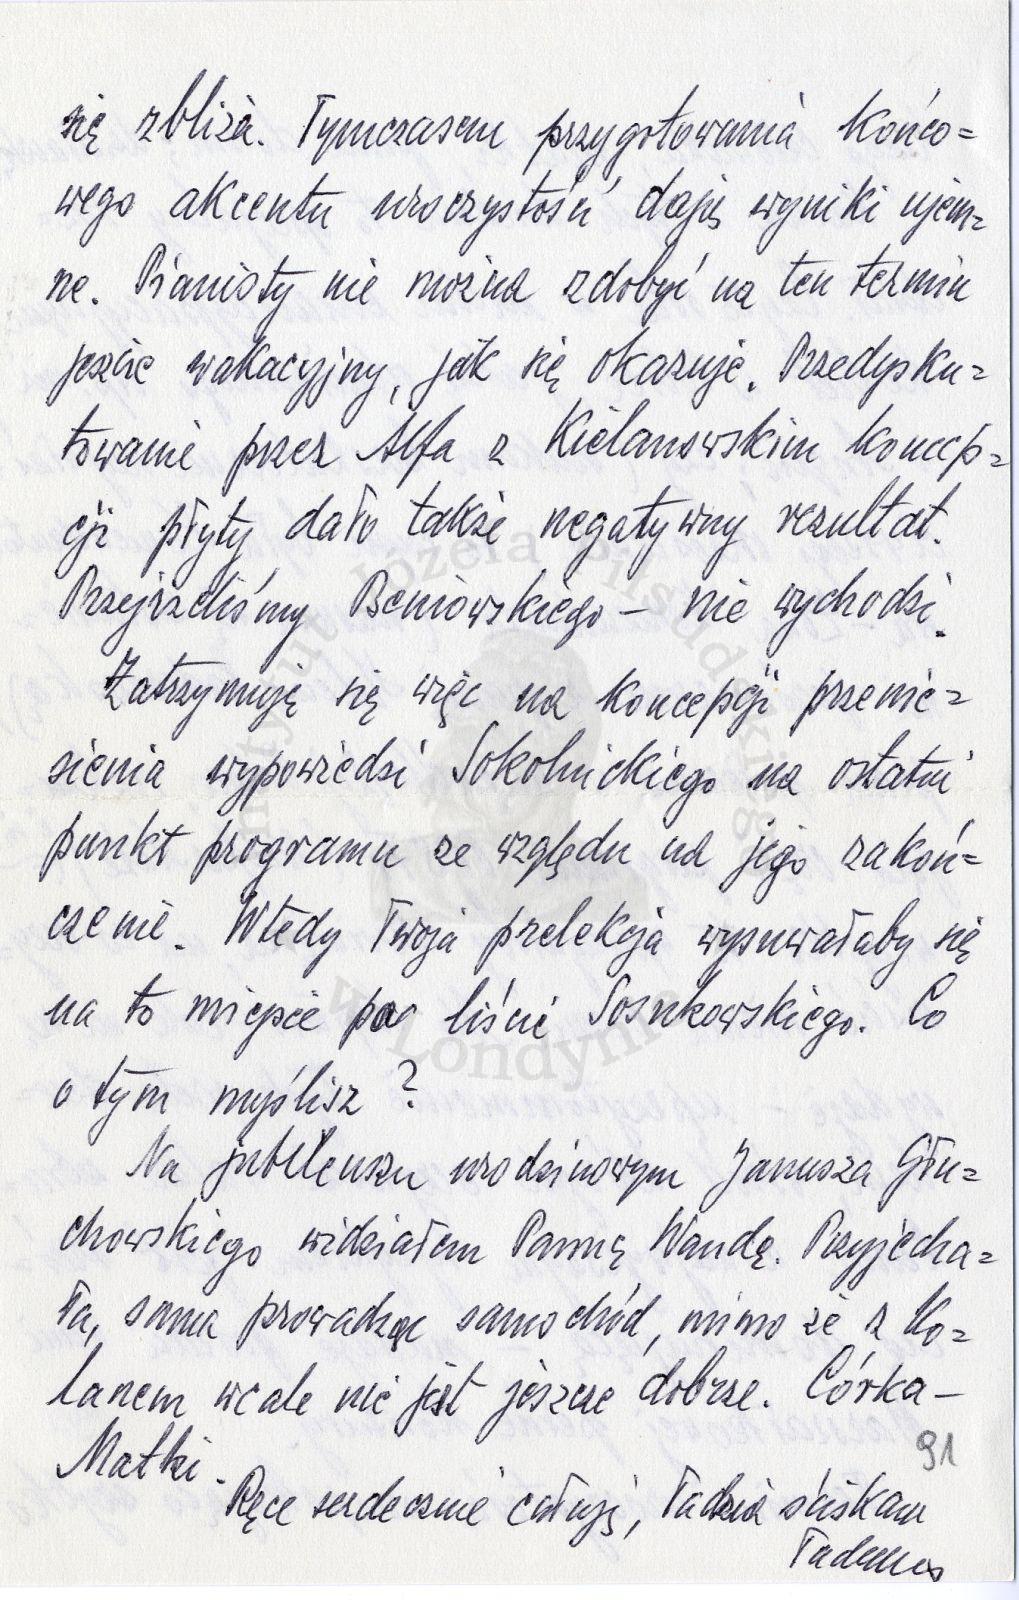 się zbliża. Tymczasem przygotowania końco=
wego akcentu uroczystości dają wyniki ujem=
ne. Pianisty nie można zdobyć na ten termin
jeszcze wakacyjny, jak się okazuje. Przedysku=
towanie przez Alfa z Kielanowskim koncep=
cji płyty dało także negatywny rezultat.
Przejrzeliśmy Beniowskiego – nie wychodzi.
Zatrzymuję się więc na koncepcji przenie=
sienia wypowiedzi Sokolnickiego na ostatni
punkt programu ze względu na jego zakoń=
czenie. Wtedy Twoja prelekcja wysuwałaby się
na to miejsce po liście Sosnkowskiego. Co
o tym myślisz?
Na jubileuszu urodzinowym Janusza Głu=
chowskiego widziałem Pannę Wandę. Przyjecha=
ła, sama prowadząc samochód, mimo że z ko=
lanem wcale nie jest jeszcze dobrze. Córka –
Matki.
91
Ręce serdecznie całuję, Tadzia ściskam
Tadeusz
Instytut Józefa Piłsudskiego
w Londynie